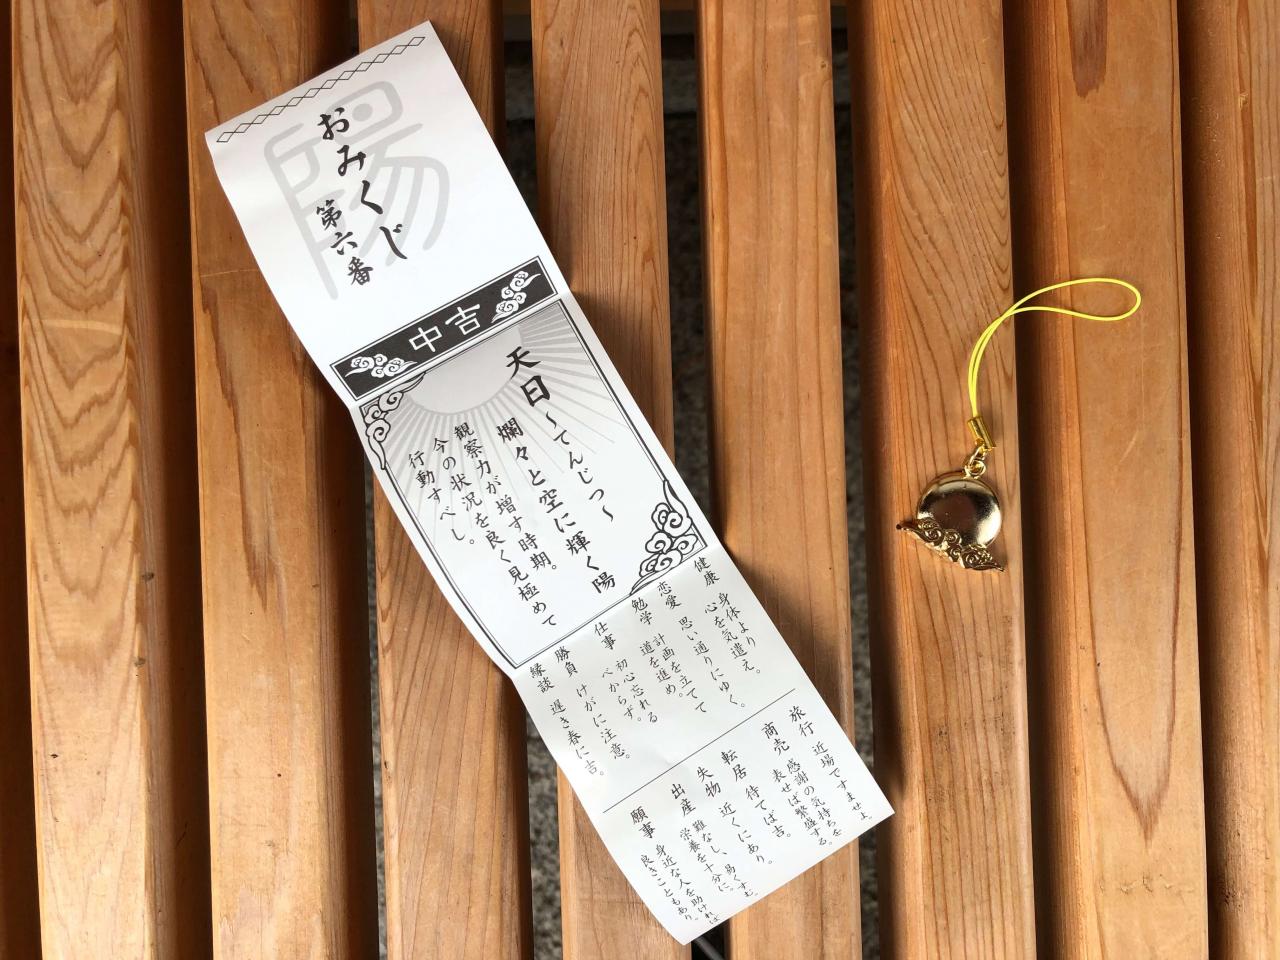 陽
おみくじ
第六番
中吉
天日〜てんじつ〜
爛々と空に輝く陽
観察力が増す時期。
今の状況を良く見極めて
行動すべし。
健康 身体より
心を気遣え。
恋愛 思い通りにゆく。
勉学 計画を立てて
道を進め。
仕事 初心忘れる
べからず。
勝負 けがに注意。
縁談 遅き春に吉。
旅行 近場ですませよ。
商売 感謝の気持ちを
表せば繁盛する。
転居 待てば吉。
失物 近くにあり。
出産 難なし、易くすむ。
栄養を十分に。
願事 身近な人を助ければ
良きこともあり。